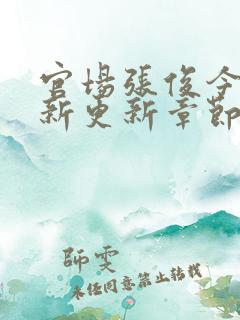 官場張俊今
新更新章節
師雯
未經同意禁止轉載